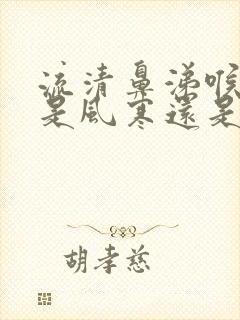 流清鼻涕喉
是風寒還是
胡孝慈